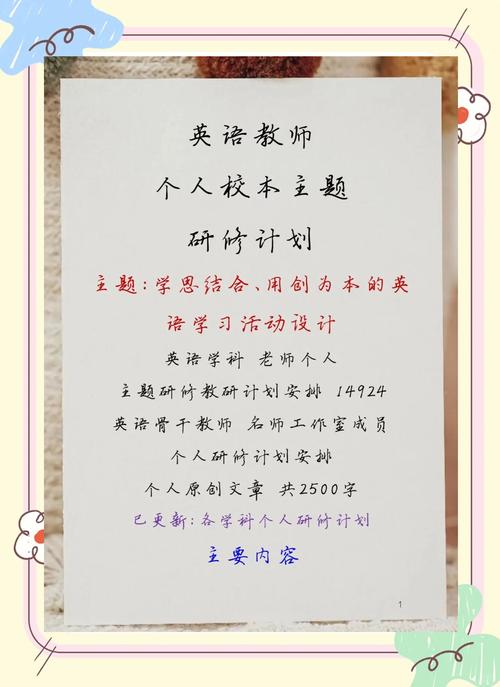 英语教师
个人校本主题
研修计划
主题:学思结合、用创为本的英
语学习活动设计
英语学科 老师个人
主题研修教研计划安排 14924
英语骨干教师 名师工作室成员
个人研修计划安排
个人原创文章 共2500字
已更新:各学科个人研修计划
主要内容
1